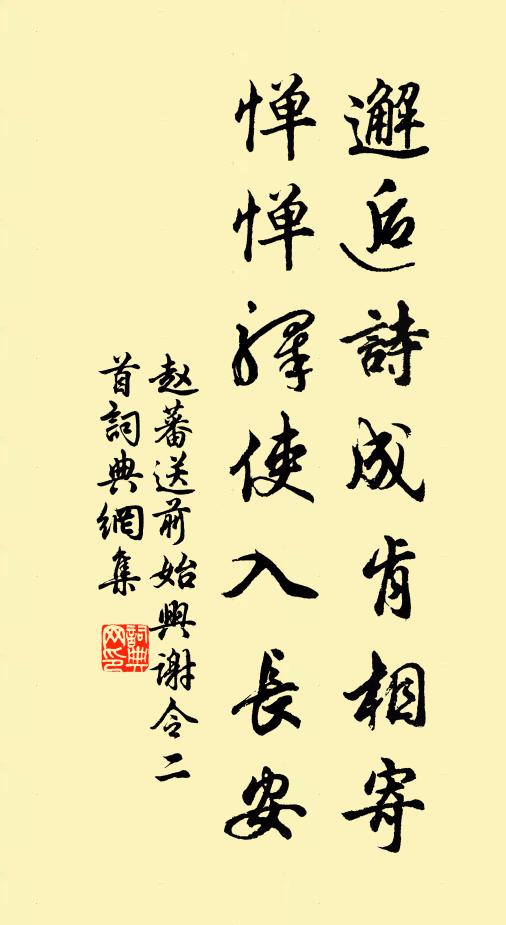 邂逅詩成肯相寄
惮惮驛使入長安
赵蕃送前始興谢令二
首詞典網集
詞典
网印